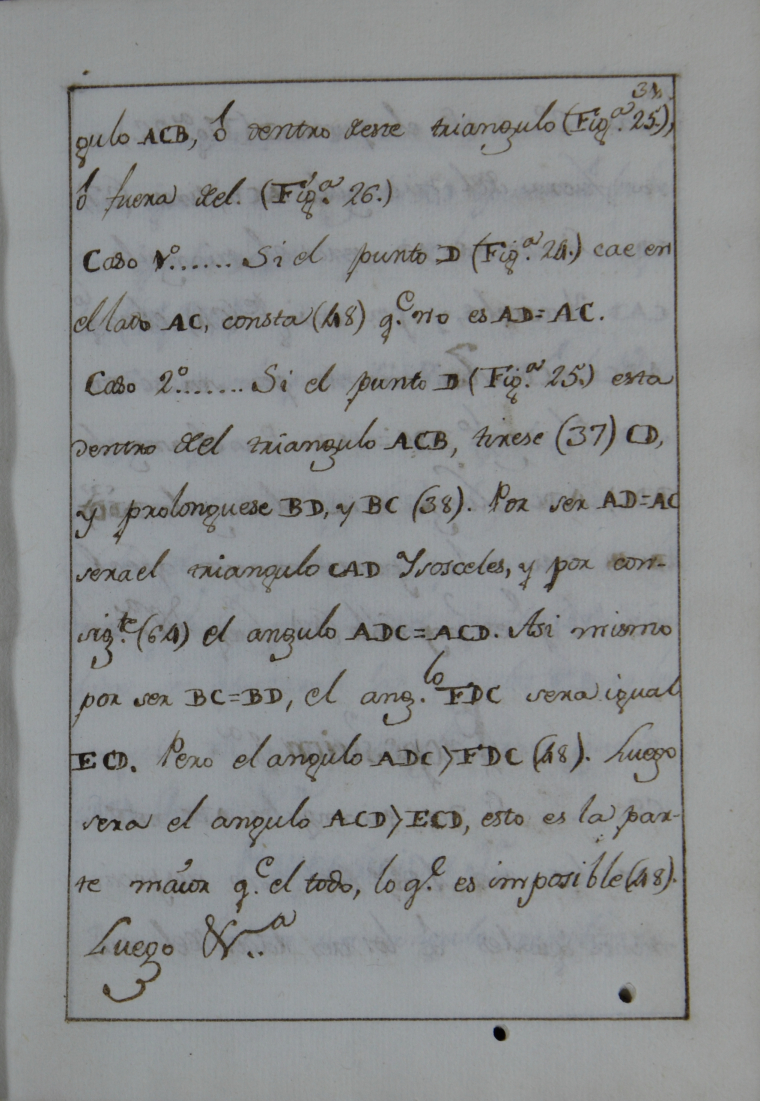 31.
gulo ACB, ó dentro deste triangulo (Fig.ª 25.),
ó fuera del. (Fig.ª 26.)
Caso 1.º...... Si el punto D (Fig.ª 24.) cae en
el lado AC, consta (48) q.e no es AD=AC.
Caso 2.º....... Si el punto D (Fig.ª 25.) esta
dentro del triangulo ACB, tirese (37) CD,
y prolonguese BD, y BC (38). Por ser AD=AC
sera el triangulo CAD Ysosceles, y por con-
sig.te (64) el angulo ADC=ACD. Asi mismo
por ser BC=BD, el ang.lo FDC sera igual
ECD. Pero el angulo ADC>FDC (48). Luego
sera el angulo ACD>ECD, esto es la par-
te maior q.e el todo, lo q.e es imposible (48).
Luego &.ª